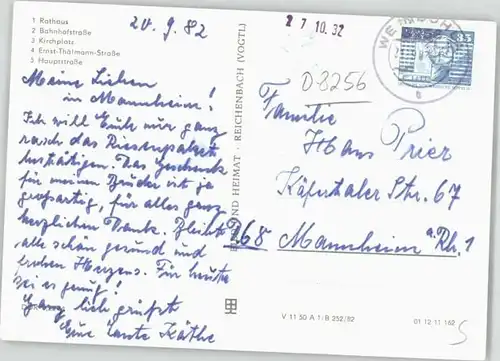 1 Rathaus
2 Bahnhofstraße
3 Kirchplatz
4 Ernst-Thälmann-Straße
5 Hauptstraße
20.9.82
Meine Lieben
in Mannheim!
Ich will Euch nur ganz
rasch das Riesenpaket
bestätigen. Das Geschenk
für meinen Bruder ist ja
großartig, für alles ganz
herzlichen Dank. Bleibt
alle schön gesund und
frohen Herzens. Für heute
sei es genug!
Ganz lieb grüßt
Eure Tante Käthe
BILD UND HEIMAT REICHENBACH (VOGTL)
27.10.82
D-8256
35
Familie
Hans Prier
Käfertaler Str. 67
68 Mannheim a. Rh. 1
V 11 50 A 1/B 252/82
01 12 11 162